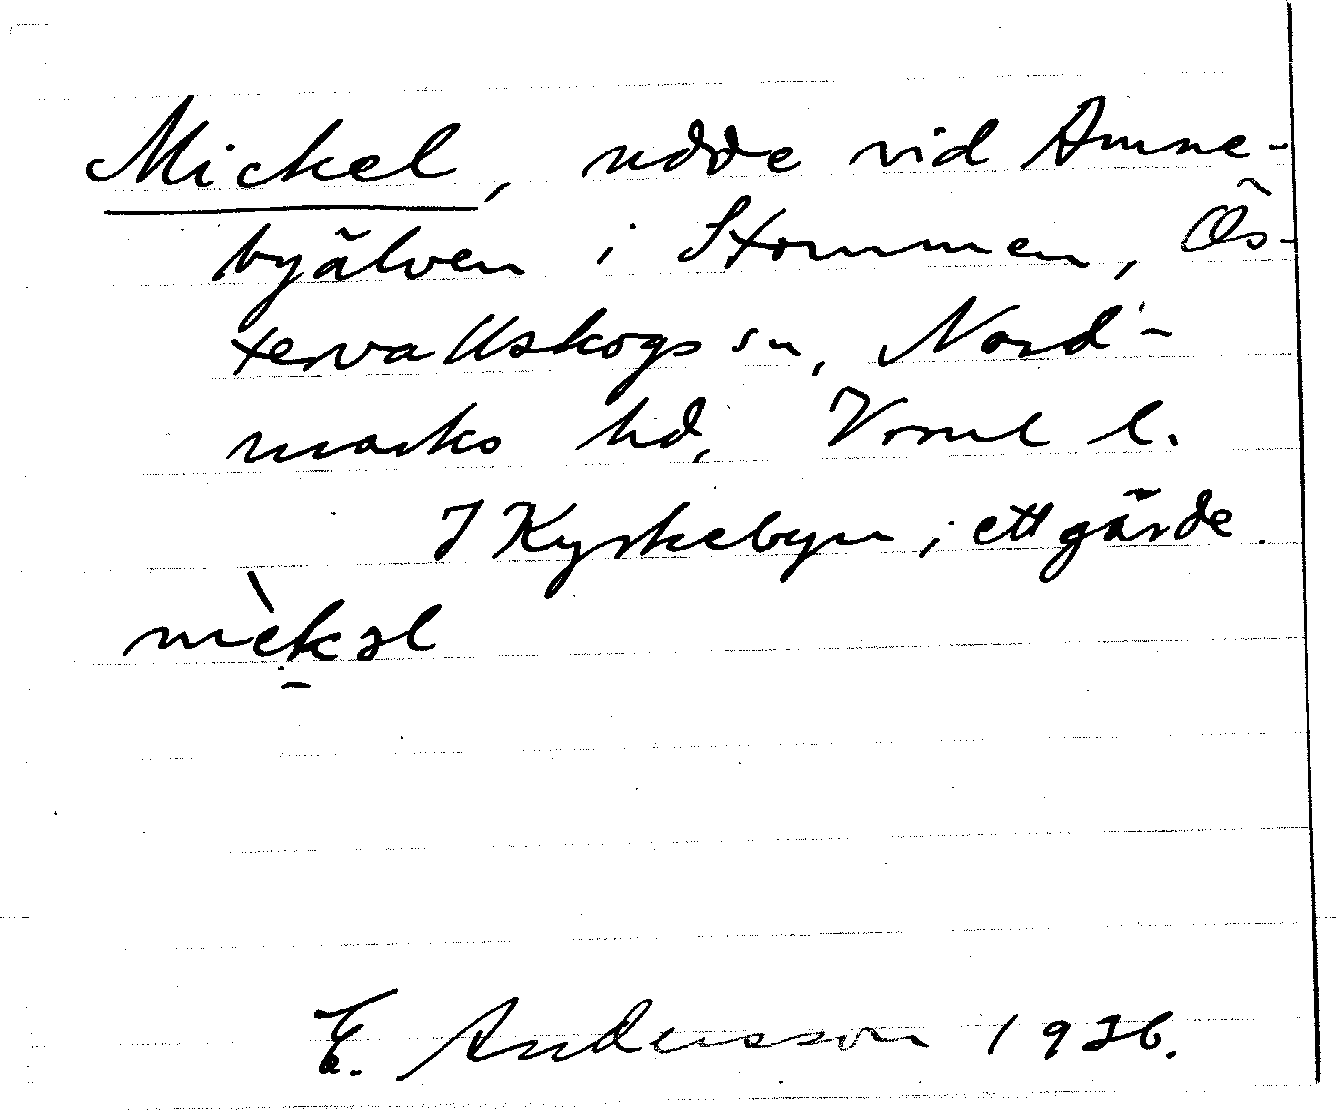 Mickel, udde vid Amne-
byälven i Stommen, Ös-
tervallskogs sn, Nord-
marks hd, Vrml l.
I Kyrkebyn ; ett gärde.
mèkəl
E. Andersson 1936.